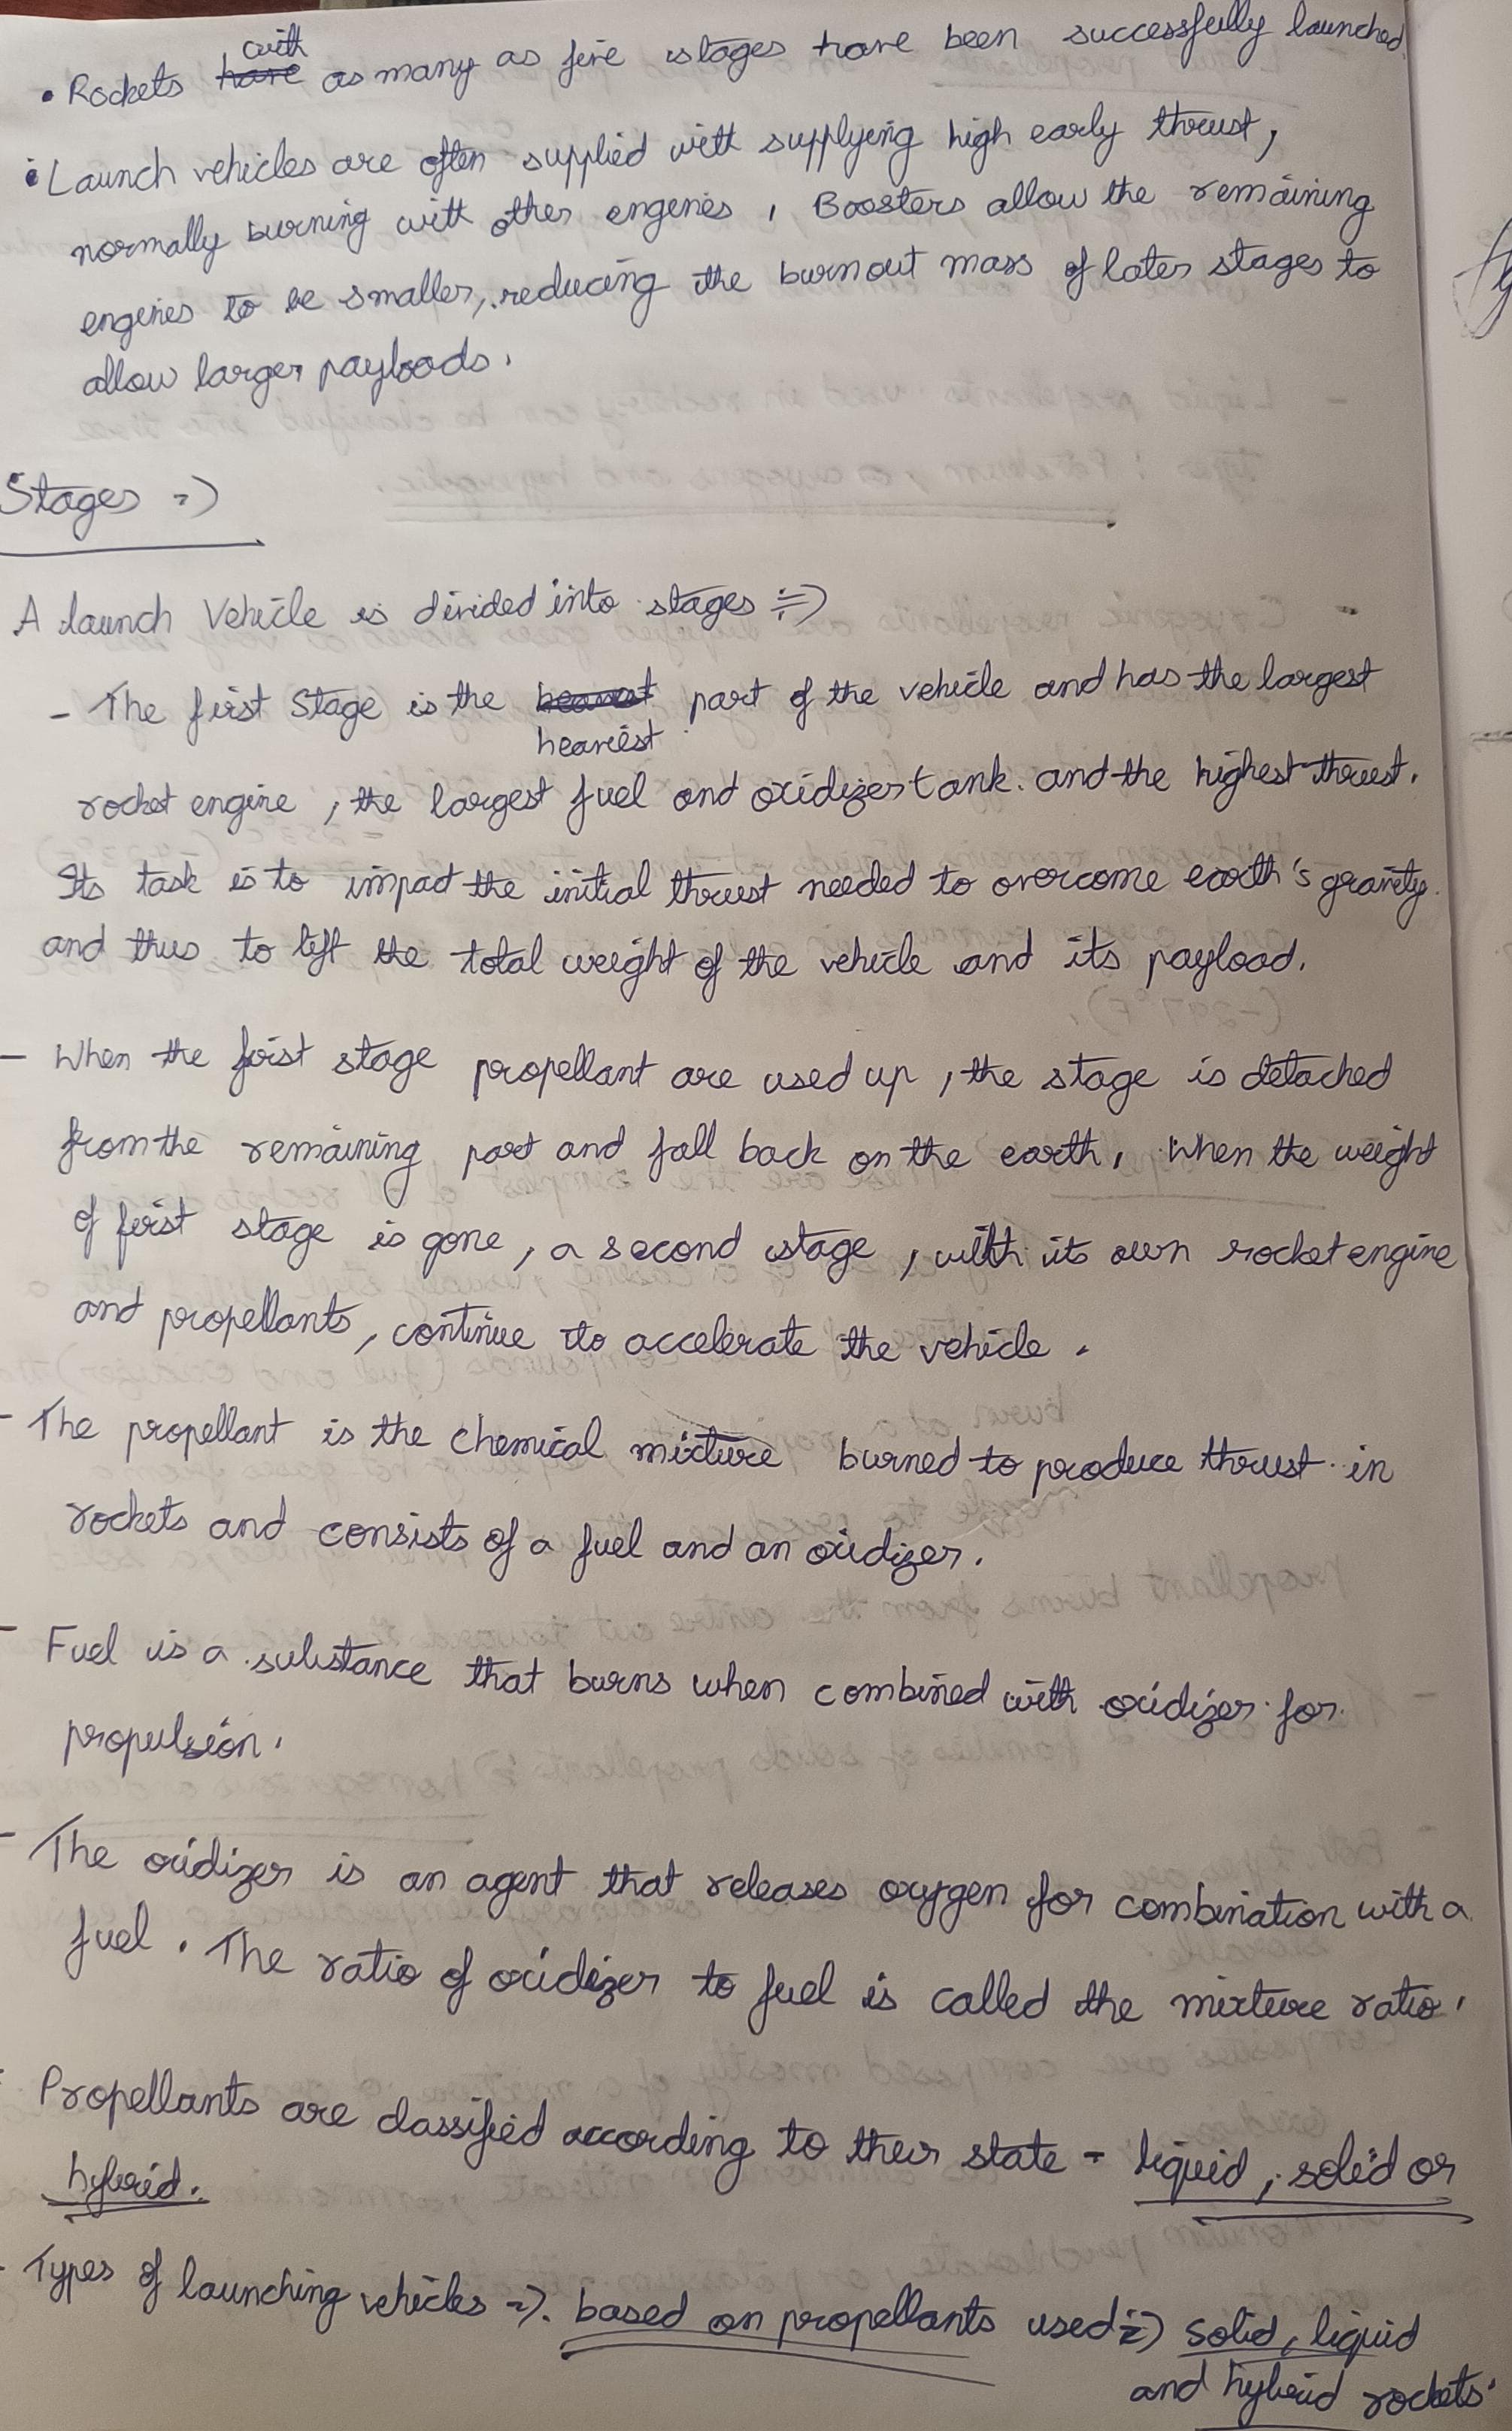 with
• Rockets have as many as five stages have been successfully launched.
• Launch vehicles are often supplied with supplying high early thrust,
normally burning with other engenies, Boosters allow the remaining
engenies to be smaller, reducing the burnout mass of later stages to
allow larger payloads.
Stages =>
A launch Vehicle is divided into stages =>
- The first Stage is the part of the vehicle and has the largest
heaviest
rocket engine, the largest fuel and oxidizer tank. and the highest thrust.
Its task is to impact the initial thrust needed to overcome earth's gravity.
and thus to lift the total weight of the vehicle and its payload.
- When the first stage propellant are used up, the stage is detached
from the remaining part and fall back on the earth, When the weight
of first stage is gone, a second stage, with its own rocket engine
and propellants, continue to accelerate the vehicle.
- The propellant is the chemical mixture burned to produce thrust in
rockets and consists of a fuel and an oxidizer.
- Fuel is a substance that burns when combined with oxidizer for
propulsion.
- The oxidizer is an agent that releases oxygen for combination with a
fuel. The ratio of oxidizer to fuel is called the mixture ratio.
- Propellants are classified according to their state - liquid, solid or
hybrid.
- Types of launching vehicles =>. based on propellants used => solid, liquid
and hybrid rockets.